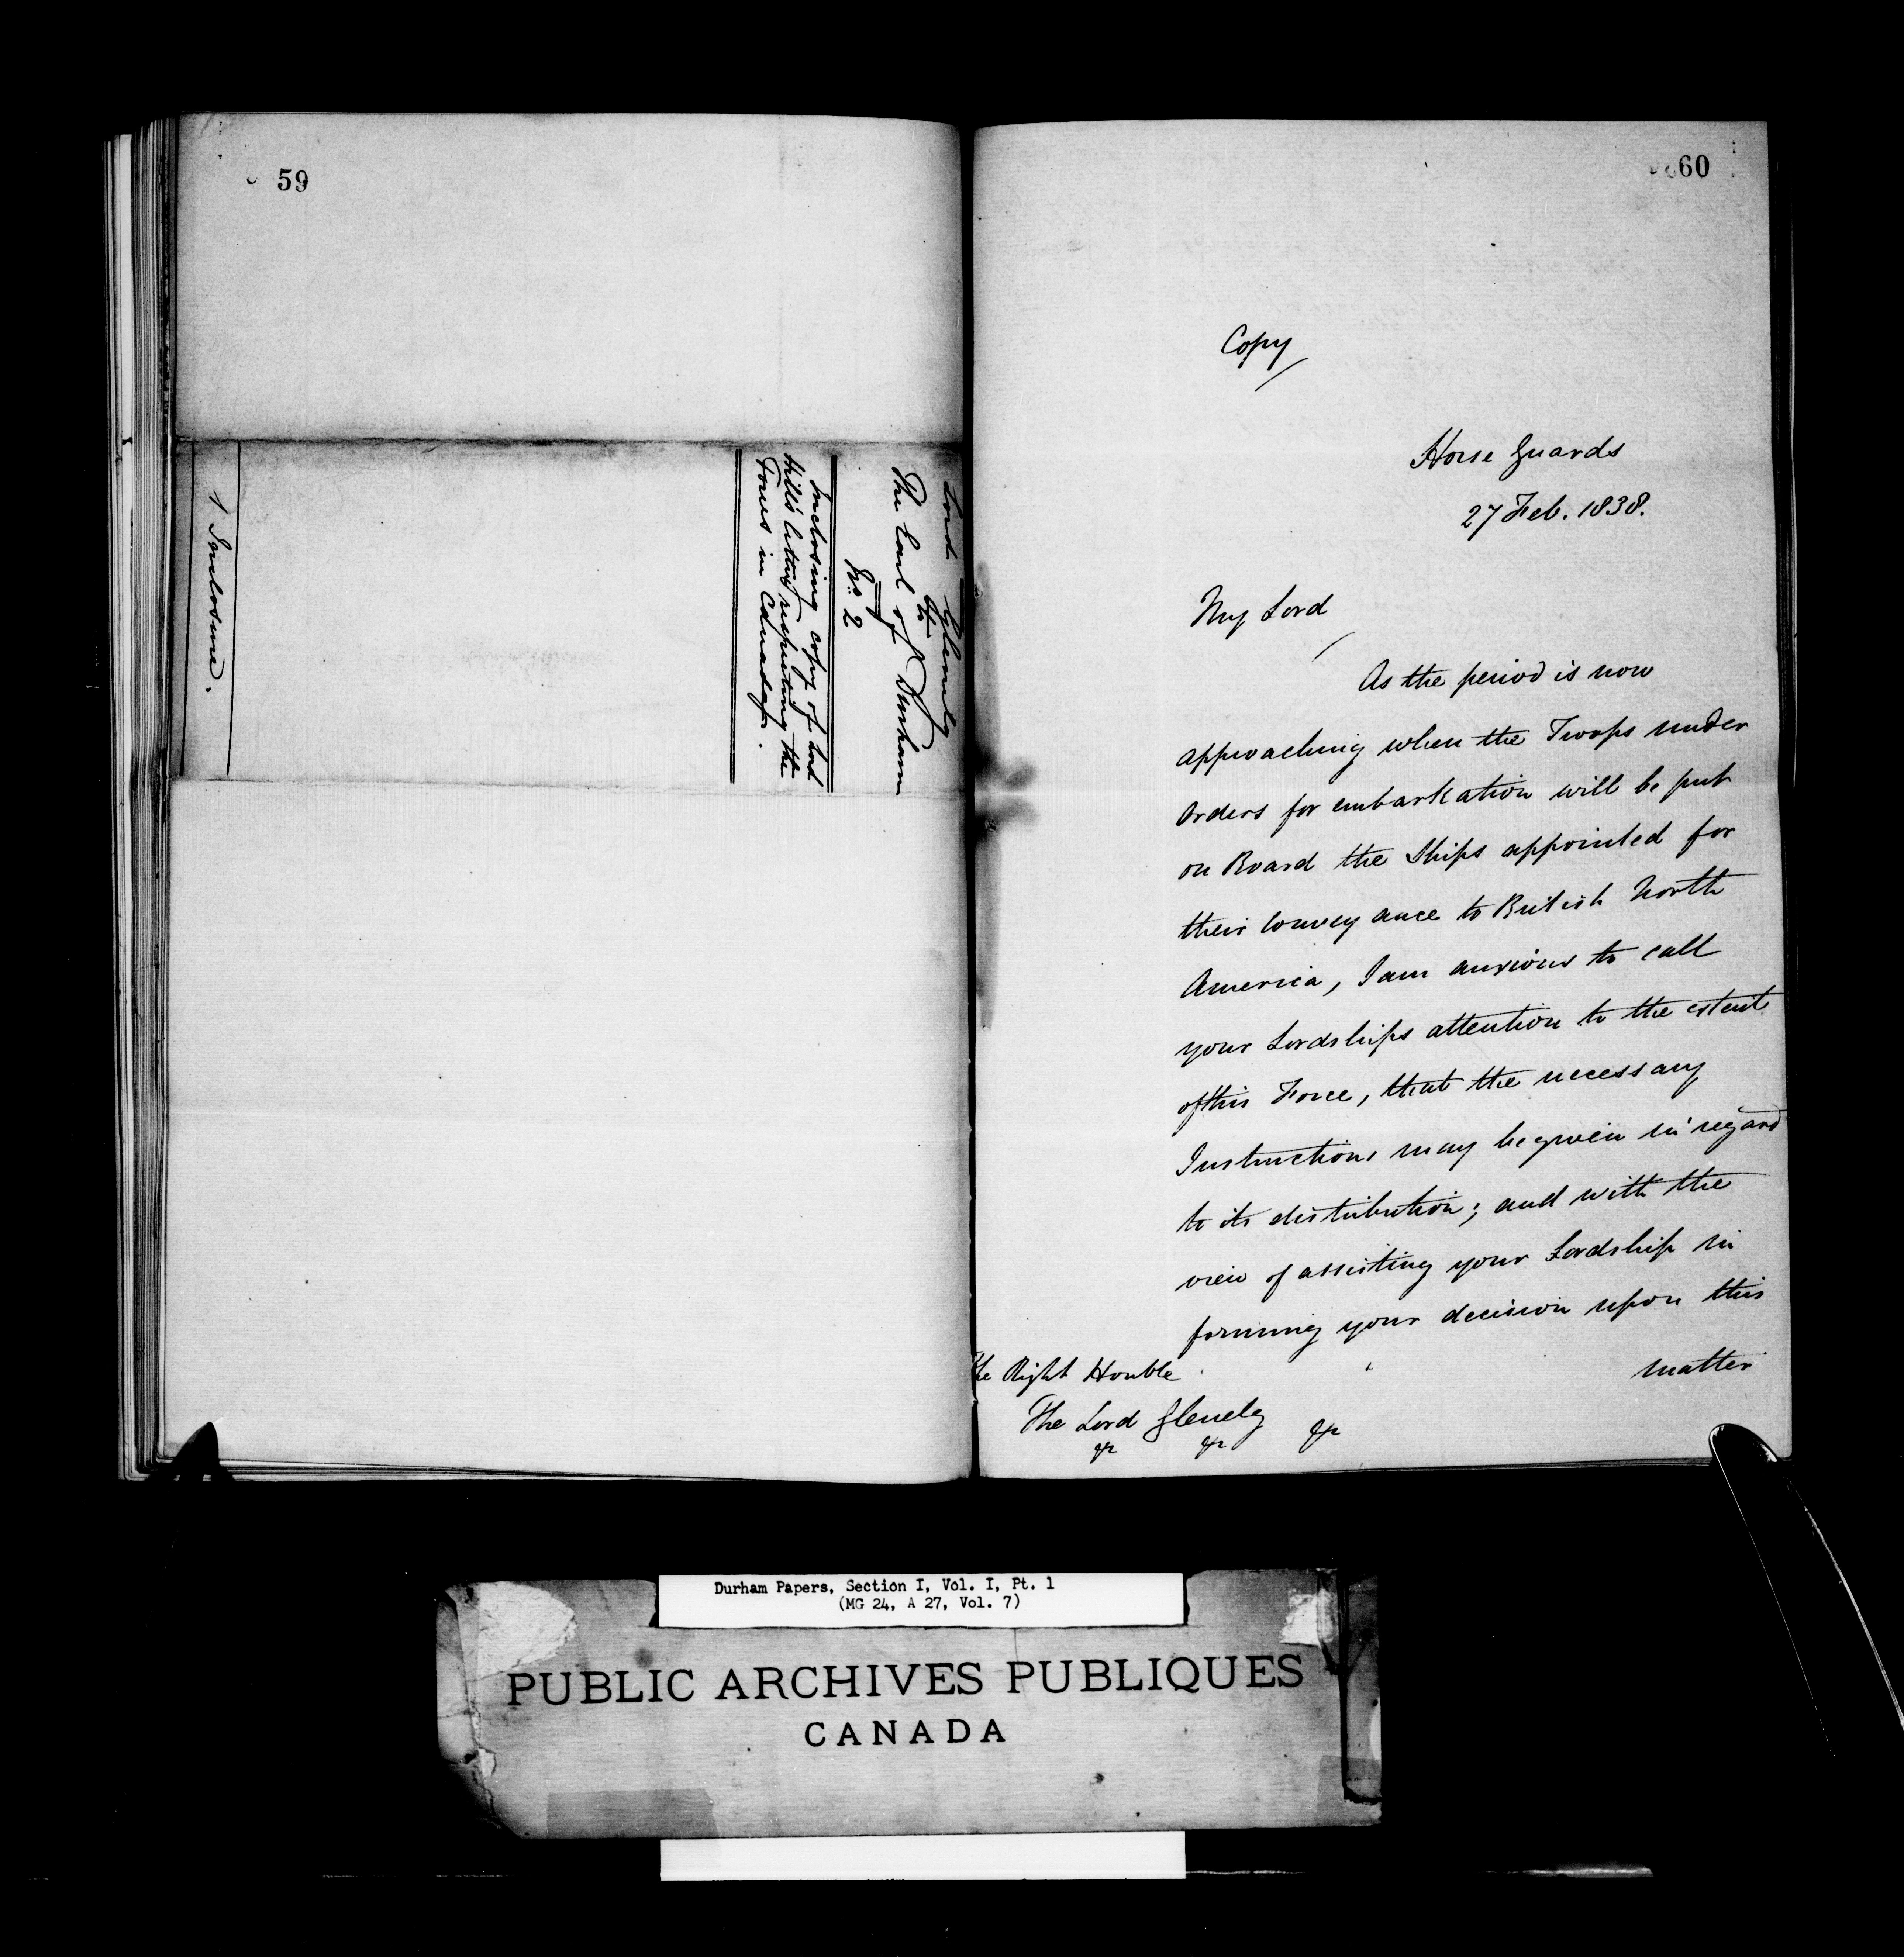 59
Lord Glenelg
to
The Earl of Durham
No. 2
Inclosing copy of Lord
Hill's letter respecting the
Forces in Canada.
1 Inclosure.
60
Copy
Horse Guards
27 Feb. 1838.
My Lord
As the period is now
approaching when the Troops under
orders for embarkation will be put
on Board the Ships appointed for
their conveyance to British North
America, I am anxious to call
your Lordships attention to the extent
of this Force, that the necessary
Instructions may be given in regard
to its distribution; and with the
view of assisting your Lordship in
forming your decision upon this
matter
The Right Honble
The Lord Glenelg
&c &c &c
Durham Papers, Section I, Vol. I, Pt. 1
(MG 24, A 27, Vol. 7)
PUBLIC ARCHIVES PUBLIQUES
CANADA